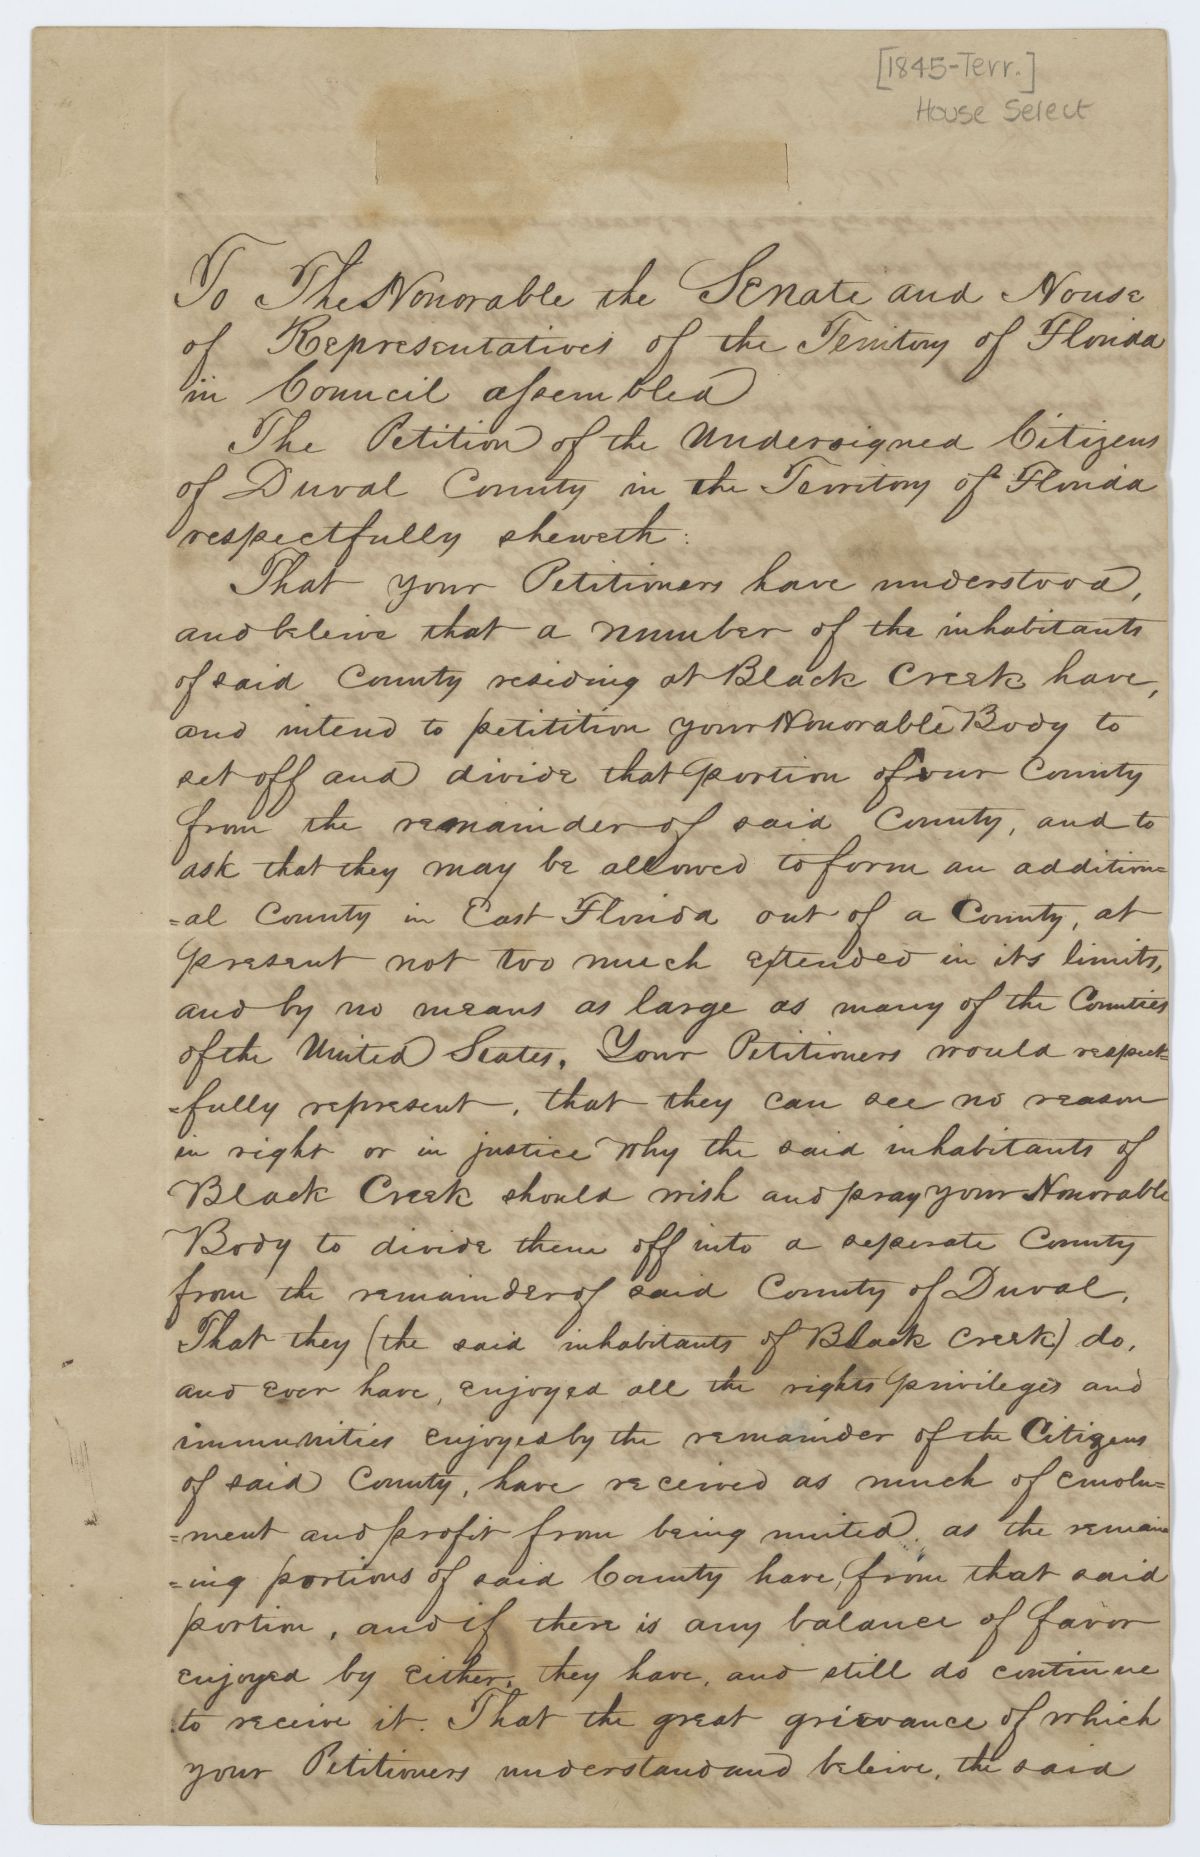 [1845-Terr.]
House Select
To The Honorable the Senate and House
of Representatives of the Territory of Florida
in Council assembled
The Petition of the Undersigned Citizens
of Duval County in the Territory of Florida
respectfully sheweth:
That your Petitioners have understood,
and beleive that a number of the inhabitants
of said County residing at Black Creek have,
and intend to petition your Honorable Body to
set off and divide that portion of our County
from the remainder of said County, and to
ask that they may be allowed to form an addition=
=al County in East Florida out of a County, at
present not too much extended in its limits,
and by no means as large as many of the Counties
of the United States. Your Petitioners would respect=
=fully represent, that they can see no reason
in right or in justice why the said inhabitants of
Black Creek should wish and pray your Honorable
Body to divide them off into a seperate County
from the remainder of said County of Duval.
That they (the said inhabitants of Black Creek) do,
and ever have, enjoyed all the rights privileges and
immunities enjoyed by the remainder of the Citizens
of said County, have received as much of emolu=
=ment and profit from being united, as the remain=
=ing portions of said County have, from that said
portion, and if there is any balance of favor
enjoyed by either, they have, and still do continue
to receive it. That the great grievance of which
your Petitioners understand and beleive, the said